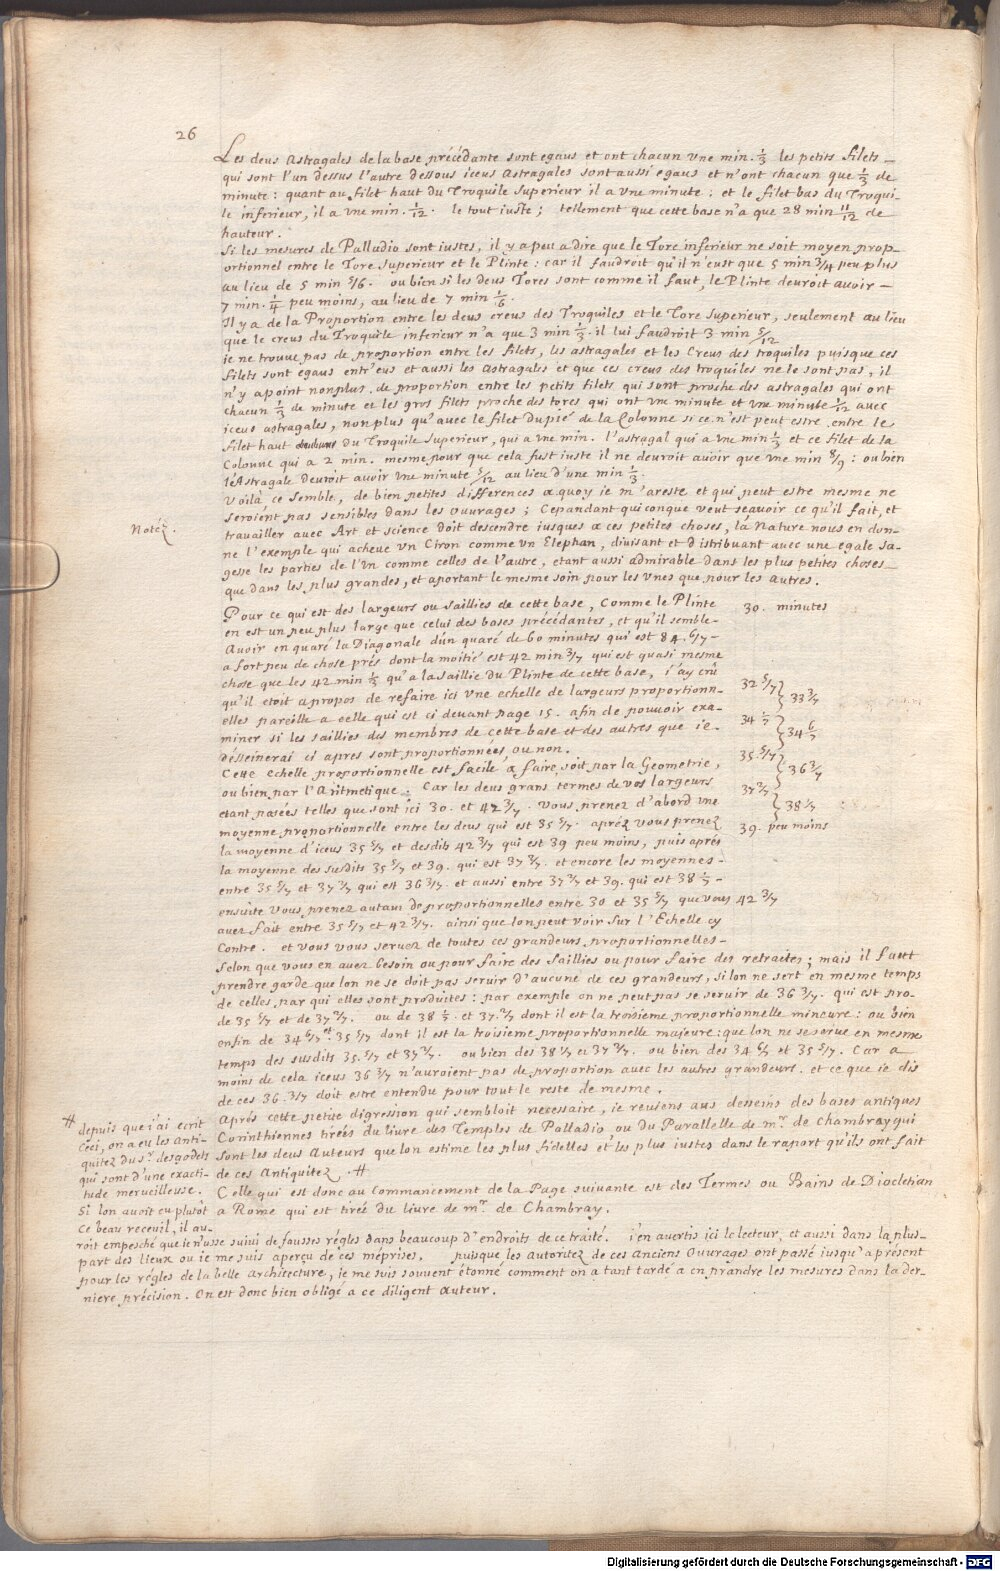 26
Les deus Astragales de la base précédante sont egaus et ont chacun vne min. 1/3 les petits filets
qui sont l'un dessus l'autre dessous iceus Astragales sont aussi egaus et n'ont chacun que 1/3 de
minute : quant au filet haut du Troquile Superieur il a vne minute ; et le filet bas du Troqui-
le inferieur, il a vne min. 1/12. le tout iuste ; tellement que cette base n'a que 28 min 11/12 de
hauteur.
Si les mesures de Palladio sont iustes, il y a peu a dire que le Tore inferieur ne soit moyen prop-
ortionnel entre le Tore Superieur et le Plinte : car il faudroit qu'il n'eust que 5 min 3/4 peu plus
au lieu de 5 min 5/6. ou bien si les deus Tores sont comme il faut, le Plinte devroit avoir
7 min. 1/4 peu moins, au lieu de 7 min 1/6.
Il y a de la Proportion entre les deus creus des Troquiles et le Tore Superieur, seulement au lieu
que le creus du Troquile inferieur n'a que 3 min 1/3. il lui faudroit 3 min 5/12
ie ne trouve pas de proportion entre les filets, les astragales et les Creus des troquiles puisque ces
filets sont egaus entr'eus et aussi les Astragales et que ces creus des troquiles ne le sont pas, il
n'y a point nonplus de proportion entre les petits filets qui sont proche des astragales qui ont
chacun 1/3 de minute et les gros filets proche des tores qui ont vne minute et vne minute 1/12 avec
iceus astragales, non plus qu'avec le filet du pié de la Colonne si ce n'est peut estre entre le
filet haut du Troquile Superieur, qui a vne min. l'astragal qui a vne min 1/3 et ce filet de la
Colonne qui a 2 min. mesme pour que cela fust iuste il ne devroit avoir que vne min 8/9 : ou bien
l'Astragale devroit avoir vne minute 5/12 au lieu d'une min 1/3.
Voilà ce semble, de bien petites differences a quoy ie m'areste et qui peut estre mesme ne
seroient pas sensibles dans les ouvrages ; Cependant quiconque veut sçavoir ce qu'il fait, et
Notéz.
travailler avec Art et science doit descendre iusques a ces petites choses, la Nature nous en don-
ne l'exemple qui acheve un Ciron comme un Elephan, divisant et distribuant avec une egale sa-
gesse les parties de l'un comme celles de l'autre, etant aussi admirable dans les plus petites choses
que dans les plus grandes, et aportant le mesme soin pour les vnes que pour les autres.
Pour ce qui est des largeurs ou saillies de cette base, Comme le Plinte
en est un peu plus large que celui des bases précédantes, et qu'il semble
Avoir en quaré la Diagonale d'un quaré de 60 minutes qui est 84. 6/7
a fort peu de chose prés dont la moitié est 42 min 3/7 qui est quasi mesme
chose que les 42 min 1/2 qu'a la saillie du Plinte de cette base, i'ay crû
qu'il etoit apropos de refaire ici vne echelle de largeurs proportionn-
elles pareille a celle qui est ci devant page 15. afin de pouvoir exa-
miner si les saillies des membres de cette base et des autres que ie
desseinerai ci apres sont proportionnées ou non.
Cette echelle proportionnelle est facile a faire, soit par la Geometrie,
ou bien par l'Aritmetique. Car les deus grans termes de vos largeurs
etant posées telles que sont ici 30. et 42 3/7. vous prenez d'abord vne
moyenne proportionnelle entre les deus qui est 35 5/7. aprés vous prenez
la moyenne d'iceus 35 5/7 et desdits 42 3/7 qui est 39 peu moins, puis aprés
la moyenne des susdits 35 5/7 et 39. qui est 37 2/7. et encore les moyennes
entre 35 5/7 et 37 2/7 qui est 36 3/7. et aussi entre 37 2/7 et 39. qui est 38 1/7
ensuite vous prenez autant de proportionnelles entre 30 et 35 5/7 que vous
avez fait entre 35 5/7 et 42 3/7. ainsi que lon peut voir sur l'Echelle cy
Contre. et vous vous servez de toutes ces grandeurs proportionnelles
30. minutes
32 5/7
33 3/7
34 1/7
34 6/7
35. 5/7
36 3/7
37 2/7
38 1/7
39. peu moins
42 3/7
selon que vous en avez besoin ou pour faire des saillies ou pour faire des retraites ; mais il faut
prendre garde que lon ne se doit pas servir d'aucune de ces grandeurs, si lon ne sert en mesme temps
de celles par qui elles sont produites : par exemple on ne peut pas se servir de 36 3/7. qui est pro-
de 35 5/7 et de 37 2/7. ou de 38 1/7. et 37. 2/7 dont il est la troisieme proportionnelle mineure : ou bien
enfin de 34 6/7 et 35 5/7 dont il est la troisieme proportionnelle majeure : que lon ne se serve en mesme
temps des susdits 35. 5/7 et 37 2/7. ou bien des 38 1/7 et 37 2/7. ou bien des 34 6/7 et 35 5/7. Car a
moins de cela iceus 36 3/7 n'auroient pas de proportion avec les autres grandeurs. et ce que ie dis
de ces 36. 3/7 doit estre entendu pour tout le reste de mesme.
Aprés cette petite digression qui sembloit necessaire, ie reviens aus desseins des bases antiques
Corinthiennes tirées du livre des Temples de Palladio ou du Parallelle de mr. de Chambray qui
sont les deus Auteurs que lon estime les plus fidelles et les plus iustes dans le raport qu'ils ont fait
de ces Antiquitez. #
Celle qui est donc au Commancement de la Page suivante est des Termes ou Bains de Diocletian
a Rome qui est tirée du livre de mr. de Chambray.
# depuis que i'ai ecrit
Ceci, on a eu les anti-
quitez du sr. desgodets
qui sont d'une exacti-
tude merveilleuse.
Si lon avoit eu plutôt
ce beau receuil, il au-
roit empesché que ie n'usse suivi de fausses régles dans beaucoup d'endroits de ce traité. i'en avertis ici le lecteur, et aussi dans la plus-
part des lieux ou ie me suis aperçu de ces méprises. puisque les autoritez de ces anciens ouvrages ont passé iusqu'a présent
pour les régles de la belle architecture, je me suis souvent étonné comment on a tant tardé a en prandre les mesures dans la der-
niere précision. On est donc bien obligé a ce diligent auteur.
Digitalisierung gefördert durch die Deutsche Forschungsgemeinschaft - DFG